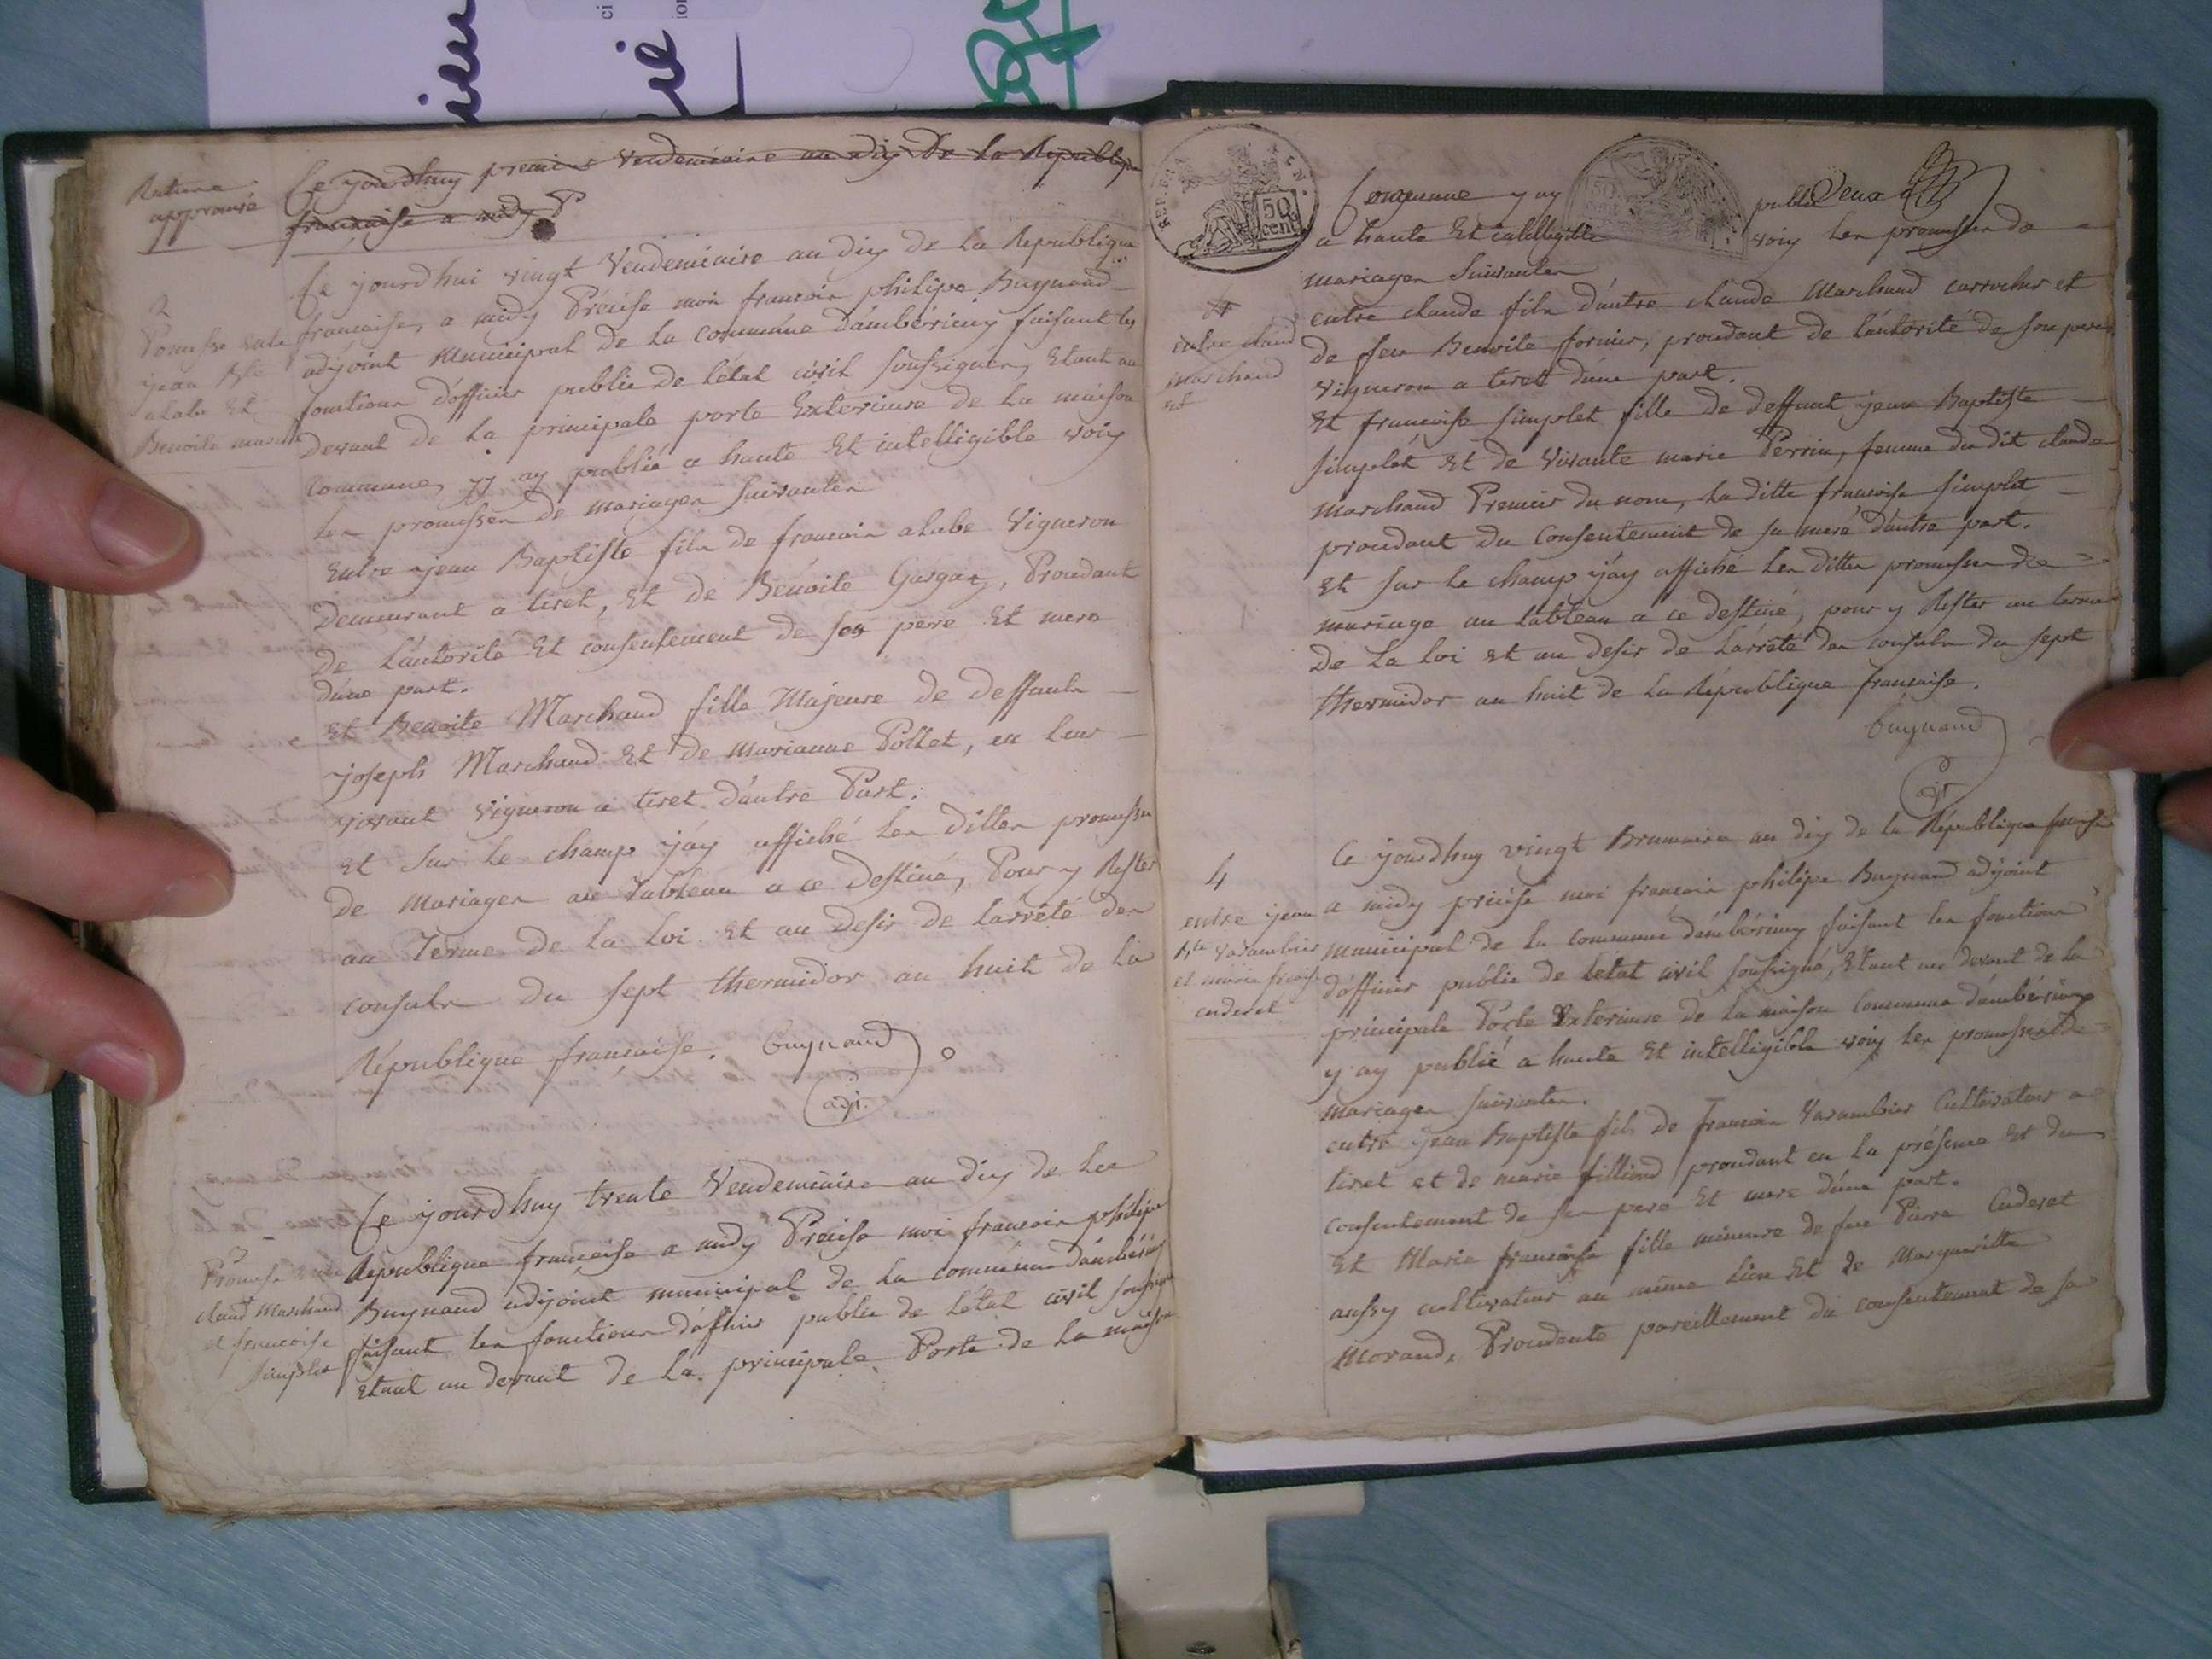 Rature
approuvé
Ce jourdhuy premier Vendemiaire an dix De la Republique
francaise a midy P
2
Pomesse entre
jean Bte
alabe Et
Benoite marchand
Ce jourdhui vingt Vendemiaire an dix de la Republique
francaise, a midy Précise moi francois philipe Buynand
adjoint Municipal de la commune d'ambérieux faisant les
fonctions d'officier public de l'état civil soussignés, Etant au
devant de la principale porte Exterieure de la maison
commune, y ay publié a haute Et intelligible voix
les promesses de mariages suivantes
Entre jean Baptiste fils de francois alabe Vigneron
Demeurant a tiret, Et de Benoite Gargaz, Proudant
De l'autorité Et consentement de ses pere Et mere
d'une part.
Et Benoite Marchand fille Majeure de deffunts
joseph Marchand Et de Marianne Pollet, en leur
vivant vigneron a tiret d'autre Part.
Et Sur le champ j'ay affiché les dittes promesses
de Mariages au Tableau a ce Destiné, Pour y Rester
au Terme de la loi Et au Desir de l'arrété des
consuls du sept thermidor an huit de la
République française. buynand
adjt.
3
Promesse entre
claud Marchand
et francoise
simplet
Ce jourdhuy trente Vendemiaire an dix de la
Republique francaise a midy Précise moi francois philipe
Buynand adjoint municipal de la commune d'ambérieux
faisant les fonctions d'officier public de l'état civil soussigné
Etant au devant de la principale Porte de la maison
REP. FRA.
50
cent
50
Deux
Commune y ay publié
a haute Et intelligible voix les promesses de
mariages suivantes
entre claud
marchand
et
entre claude fils d'autre claude Marchand carrocher et
de feu Benoite fornier, proudant de l'autorité de son pere
vigneron a tiret d'une part.
Et francoise simplet fille de deffunt jean Baptiste
simplet Et de Vivante marie Perrin, femme du dit claude
marchand Premier du nom, la ditte francoise simplet
proudant du Consentement de sa mere d'autre part.
Et sur le champ j'ay affiché les dittes promesses de
mariage au tableau a ce destiné, pour y Rester au terme
De la loi et au desir de l'arrété des consuls du sept
thermidor an huit de la République francaise.
buynand
adjt
4
entre jean
Bte Varambier
et marie francoise
cuderet
Ce jourdhuy vingt Brumaire an dix de la République francaise
a midy précise moi francois philipe Buynand adjoint
municipal de la commune d'ambérieux faisant les fonctions
d'officier public de l'etat civil soussigné, Etant au devant de la
principale Porte Exterieure de la maison Commune d'ambérieux
y ay publié a haute Et intelligible voix les promesses de
mariages suivantes.
entre jean Baptiste fils de francois Varambier Cultivateur a
tiret et de marie filliond proudant en la présence Et du
consentement de ses pere Et mere d'une part.
Et Marie francoise fille mineure de feu Pierre Cuderet
aussy cultivateur au même lieu Et de Margueritte
Morand, Proudante pareillement du consentement de sa